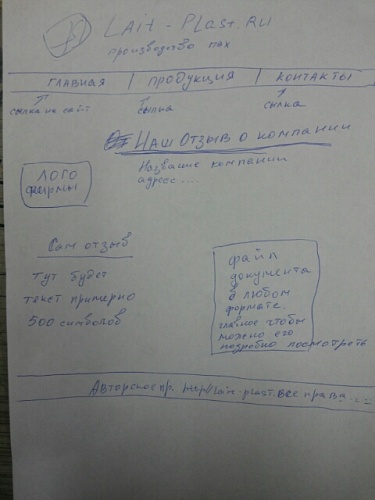 Lait-Plast.ru
производство пвх
главная | продукция | контакты
ссылка на сайт
ссылка
ссылка
Наш отзыв о компании
Название компании
адрес ....
лого
фирмы
Сам отзыв
тут будет
текст примерно
500 символов
файл
документа
в любом
формате.
главное чтобы
можно его
подробно посмотреть
Авторское пр. http//lait-plast. все права ....